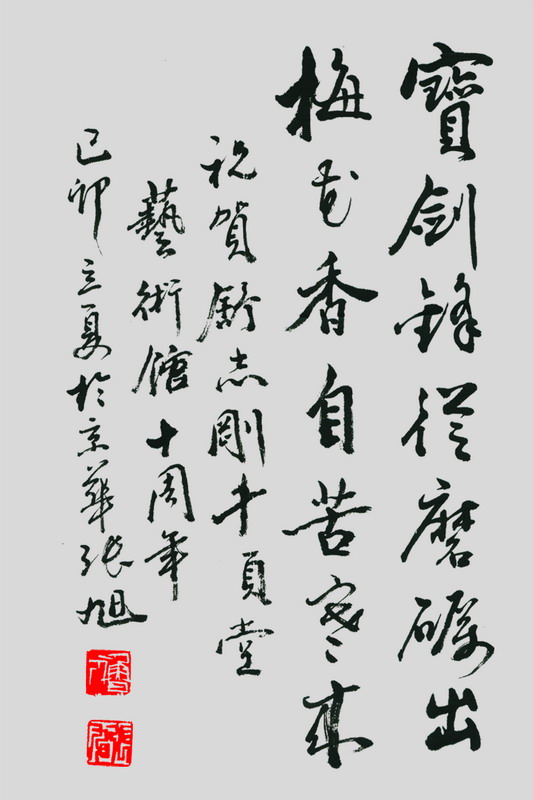 寶劍鋒從磨礪出
梅花香自苦寒来
祝賀舒志剛頁堂
藝術館十周年
己卯立夏於京華張旭